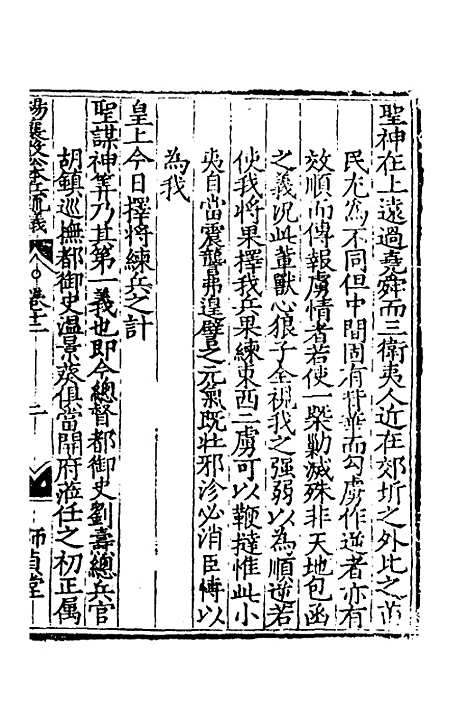 聖神在上遠過堯舜而三衛夷人近在郊圻之外比之苗
民尤為不同但中間固有背華而勾虜作逆者亦有
效順而傳報虜情者若使一槩勦滅殊非天地包函
之義况此輩獸心狼子全視我之強弱以為順逆若
使我將果擇我兵果練東西二虜可以鞭撻惟此小
夷自當震讋弗遑譬之元氣既壯邪沴必消臣愽以
為我
皇上今日擇將練兵之計
聖謀神筭乃其第一義也即今總督都御史劉壽總兵官
胡鎮巡撫都御史温景葵俱當開府涖任之初正属
楊襄毅公本兵疏議
卷十二
二
師貞堂